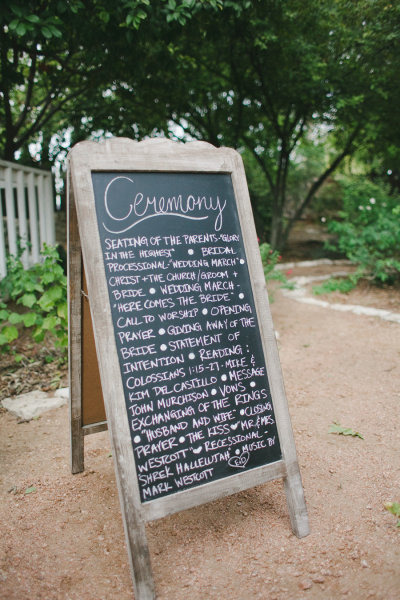 Ceremony
SEATING OF THE PARENTS-"GLORY
IN THE HIGHEST" • BRIDAL
PROCESSIONAL-"WEDDING MARCH"
CHRIST + THE CHURCH/GROOM +
BRIDE • WEDDING MARCH-
"HERE COMES THE BRIDE" •
CALL TO WORSHIP • OPENING
PRAYER • GIVING AWAY OF THE
BRIDE • STATEMENT OF
INTENTION • READING:
COLOSSIANS 1:15-27-MIKE &
KIM DEL CASTILLO • MESSAGE
JOHN MURCHISON • VOWS •
EXCHANGING OF THE RINGS
• "HUSBAND AND WIFE" • CLOSING
PRAYER • THE KISS ♥ MR & MRS
WESTCOTT "♥ RECESSIONAL-
SHREK HALLELUJAH • MUSIC BY
MARK WESTCOTT